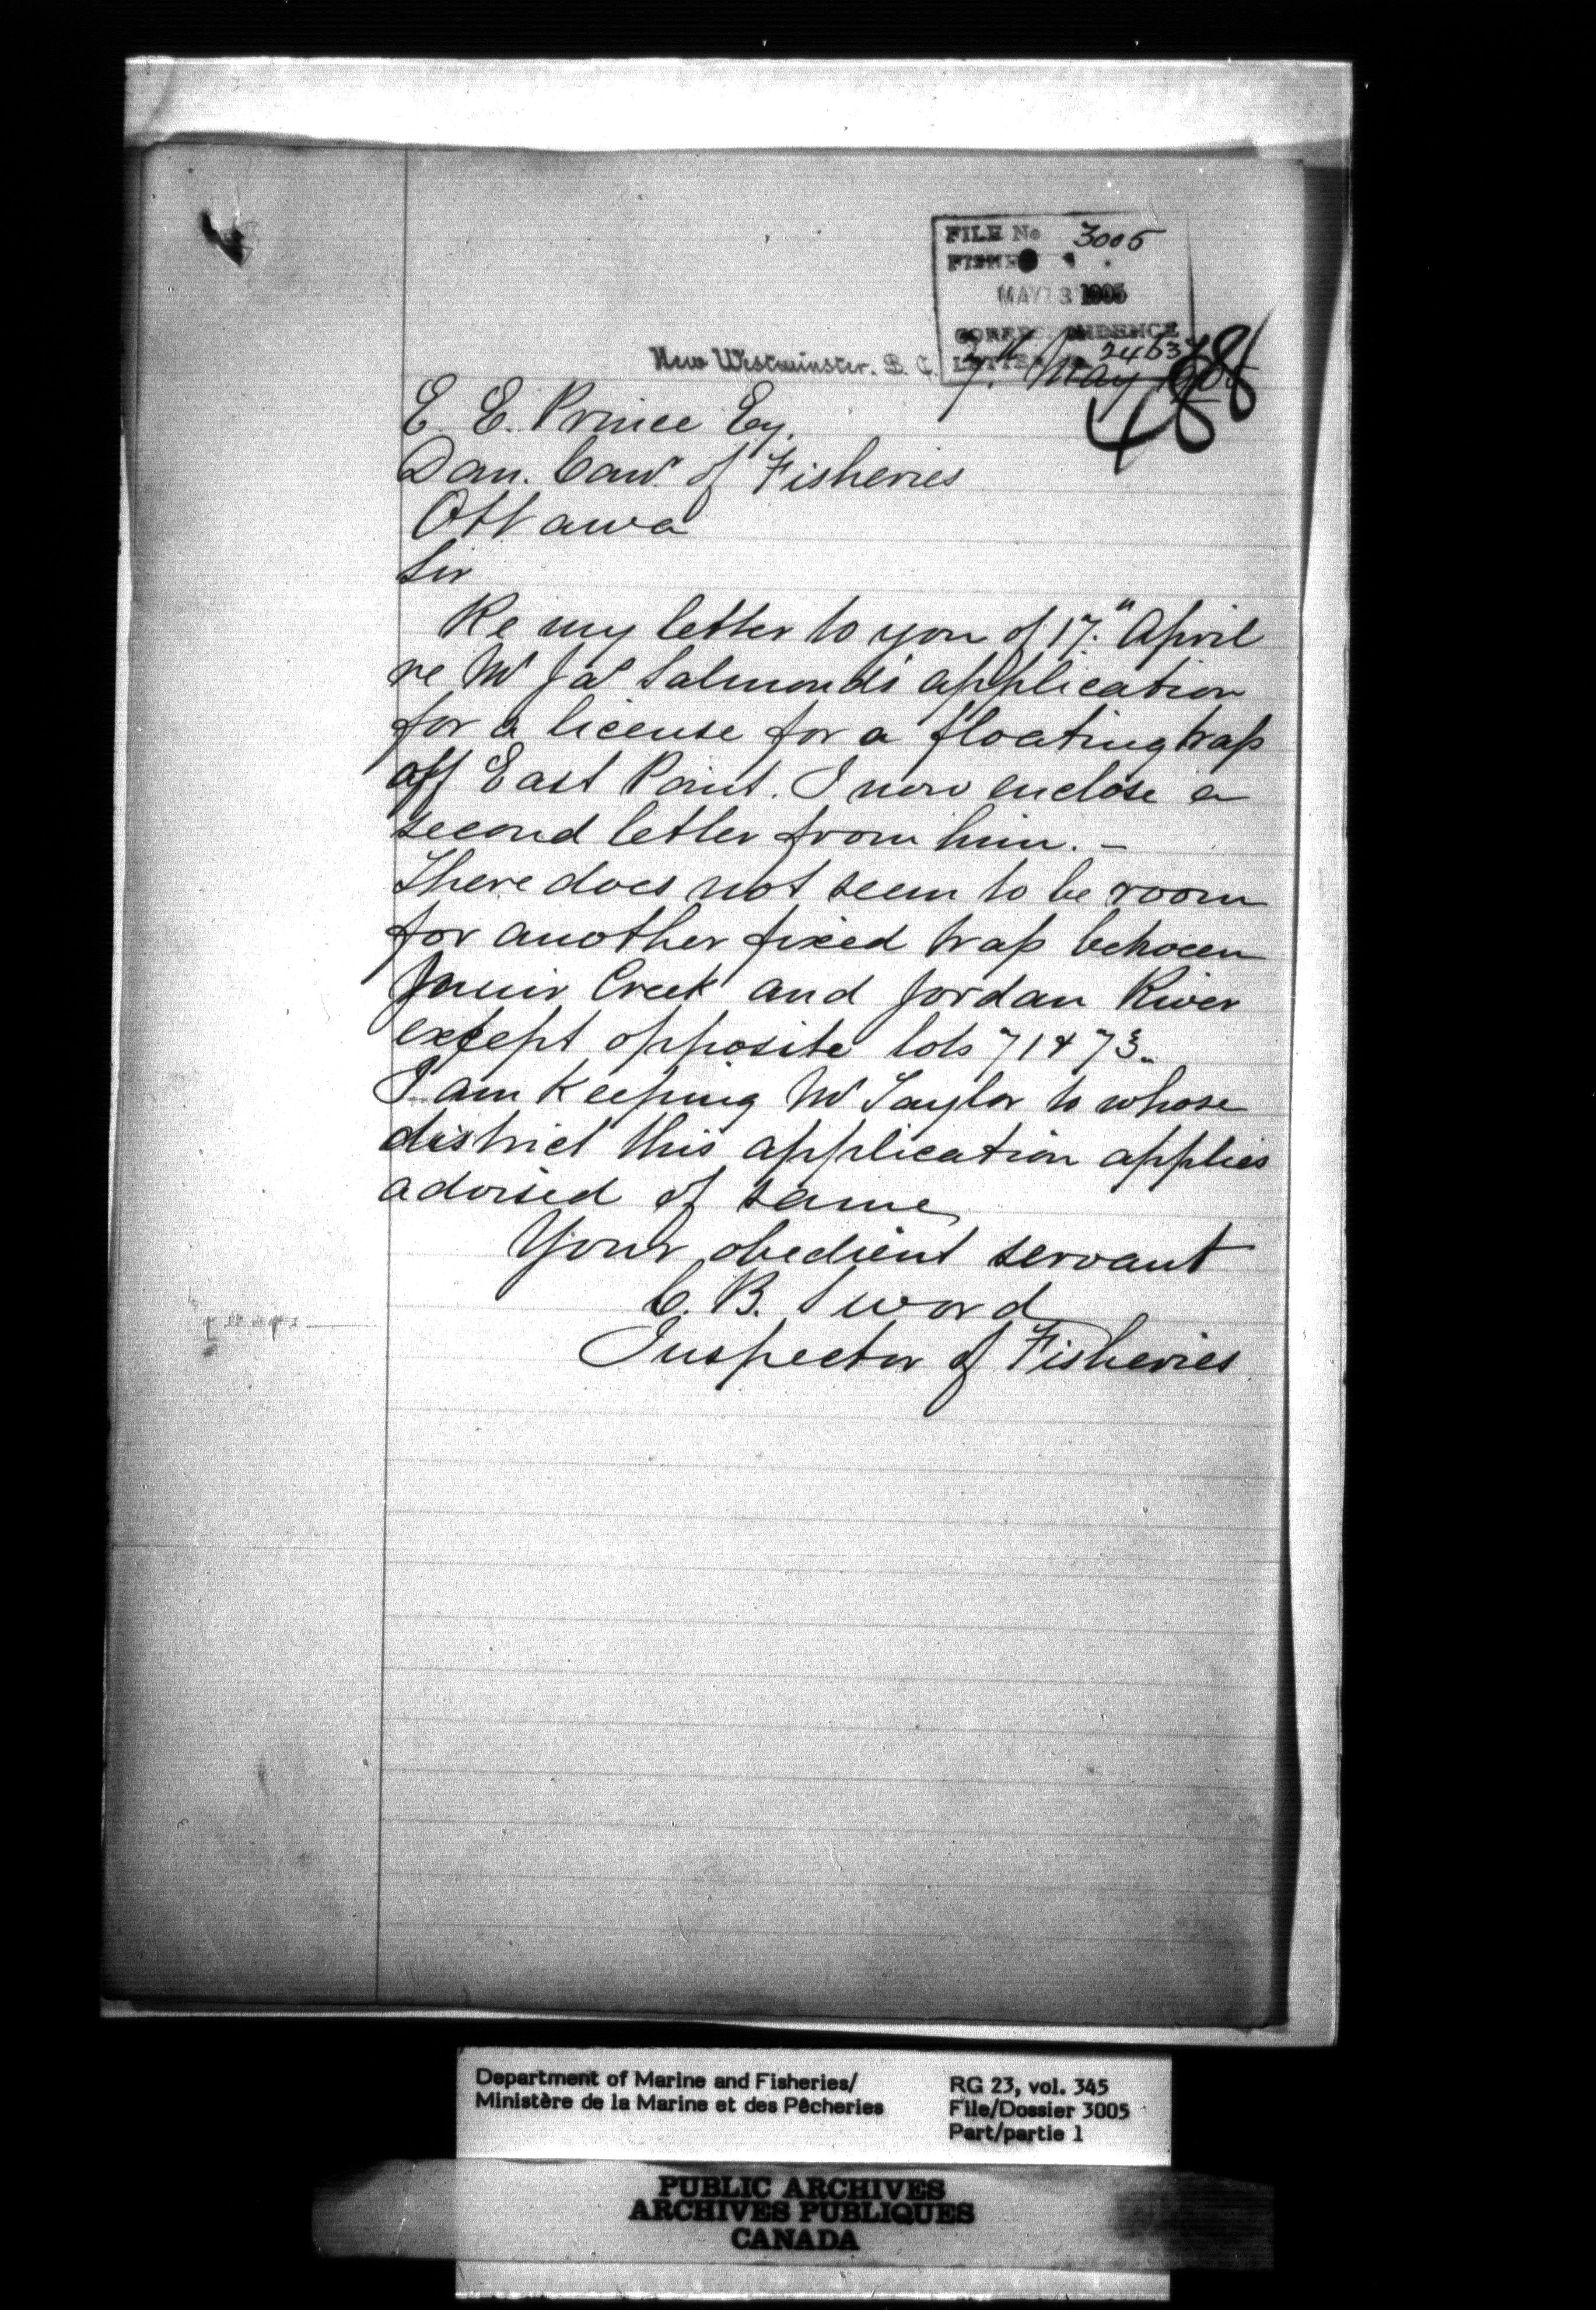 FILE No 3005
MAY 13 1905
CORRESPONDENCE
LETTER No 24637
488
New Westminster. B. C. 7th May 1905
E. E. Prince Esq.
Dom. Comr of Fisheries
Ottawa
Sir
Re my letter to you of 17th April
re Mr Jas Salmond's application
for a license for a floating trap
off East Point. I now enclose a
second letter from him. –
There does not seem to be room
for another fixed trap between
Creek and Jordan River
except opposite lots 71 & 73.
I am keeping Mr Taylor to whose
district this application applies
advised of same
Your obedient servant
C. B. Sword
Inspector of Fisheries
Department of Marine and Fisheries/
Ministère de la Marine et des Pêcheries
RG 23, vol. 345
File/Dossier 3005
Part/partie 1
PUBLIC ARCHIVES
ARCHIVES PUBLIQUES
CANADA